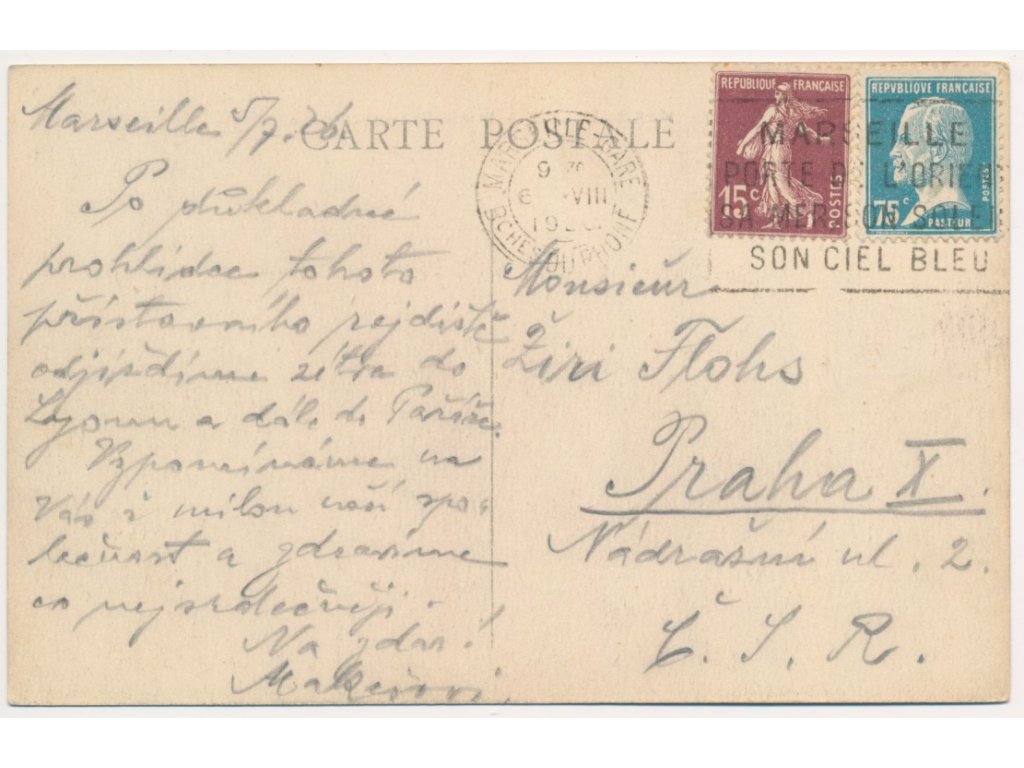 CARTE POSTALE
Marseille 5/7. 26.
Po důkladné
prohlídce tohoto
přístavního rejdiště
odjíždíme zítra do
Lyonu a dále do Paříže.
Vzpomínáme na
Vás i milou naší spo-
lečnost a zdravíme
co nejsrdečněji.
Na zdar!
MARSEILLE GARE
9
6 VIII
BCHES DU RHONE
REPUBLIQUE FRANÇAISE
15c
POSTES
REPVBLIQVE FRANÇAISE
75c
POSTES
PASTEUR
MARSEILLE
PORTE DE L'ORIENT
SA MER SON SOLEIL
SON CIEL BLEU
Monsieur
Žiri Flohs
Praha X.
Nádražní ul. 2.
Č. S. R.